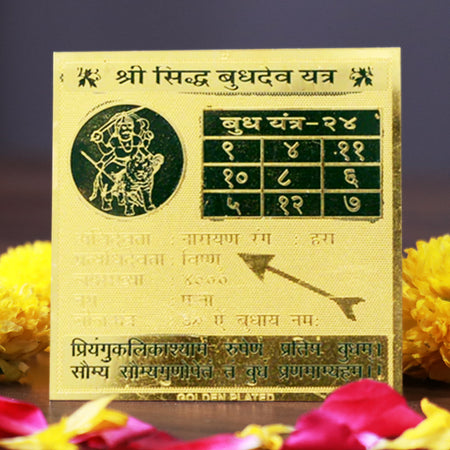 श्री सिद्ध बुधदेव यत्र
बुध यंत्र-२४
९ ४ ११
१० ८ ६
५ १२ ७
: नारायण रंग : हरा
: विष्णु
: ४०००
: पन्ना
: बुधाय नमः
प्रियंगुकलिकाश्यामं रुपेण प्रतिमं बुधम।
सौम्य सौम्यगुणोपेतं त बुध प्रणमाम्यहम।।
GOLDEN PLATED